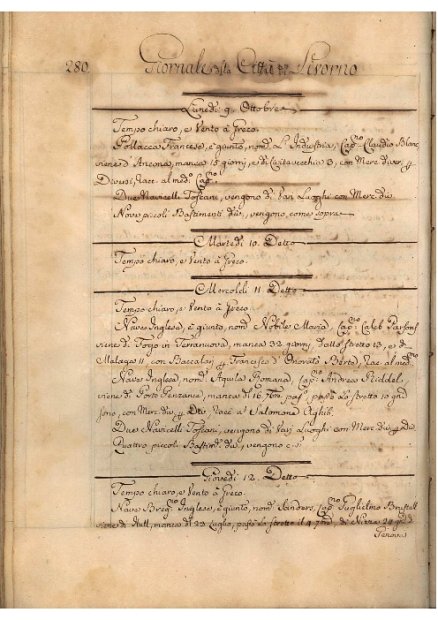 280. Giornale della Città di Livorno
Lunedì 9. Ottobre
Tempo chiaro, e Vento à Greco.
Pollacca Francese, è giunto, nom.ª L'Industria, Cap.no Claudio Blanc
viene d'Ancona, manca 15 giorni, e di Civitavecchia 3, con Merc. div. p.
Diversi, Racc. al med.º Cap.no
Due Navicelli Toscani, vengono di Vari Luoghi con Merc. div.
Nove piccoli Bastimenti div., vengono, come sopra
Martedì 10. Detto
Tempo chiaro, e Vento à Greco.
Mercoldì 11. Detto
Tempo chiaro, e Vento à Greco.
Nave Inglese, è giunto, nom.ª Nobile Maria, Cap.no Caleb Parsons
viene di in Terranuova, manca 32 giorni, dallo stretto 15, e di
Malaga 11, con Baccalari p. Francesco d'Onorato Berte, Racc. al med.mo
Nave Inglese, nom.ª Aquila Romana, Cap.no Andrea Riddel,
viene di Porto Penzance, manca di 16. 7bre, pas. lo stretto 10
sono, con Merc. div. p. Dti, Racc. a Salomone Aghib.
Due Navicelli Toscani, vengono di Varj Luoghi con Merc. div. p. div.
Quattro piccoli Bastim.ti div., vengono c. s.
Giovedì 12. Detto
Tempo chiaro, e Vento à Greco.
Nave Inglese, è giunto, nom.ª Sanders, Cap.no Guglielmo
viene di Hull, manca di 23 Luglio, passò lo stretto il 4 7bre, di Nizza 24, e di
Genova